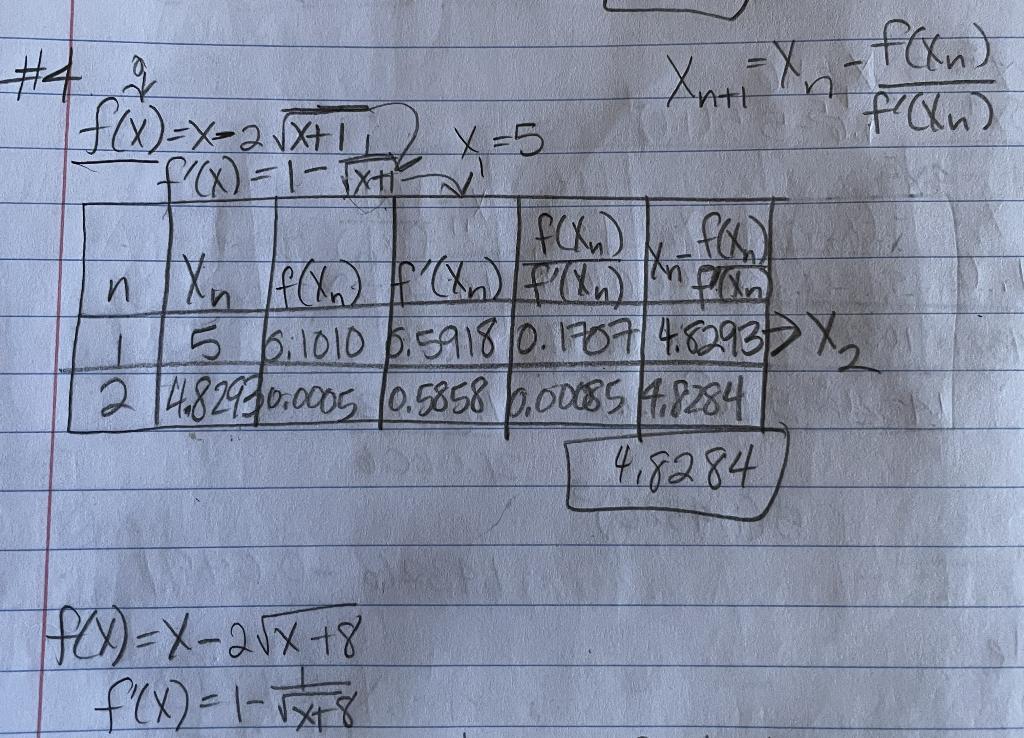 #4
g
X_{n+1} = X_n - \frac{f(X_n)}{f'(X_n)}
f(x) = x - 2\sqrt{x+1} x_1 = 5
f'(x) = 1 - \frac{1}{\sqrt{x+1}}
n X_n f(X_n) f'(X_n) \frac{f(X_n)}{f'(X_n)} X_n - \frac{f(X_n)}{f'(X_n)}
1 5 0.1010 0.5918 0.1707 4.8293 → X_2
2 4.8293 0.0005 0.5858 0.00085 4.8284
4.8284
f(x) = x - 2\sqrt{x+8}
f'(x) = 1 - \frac{1}{\sqrt{x+8}}